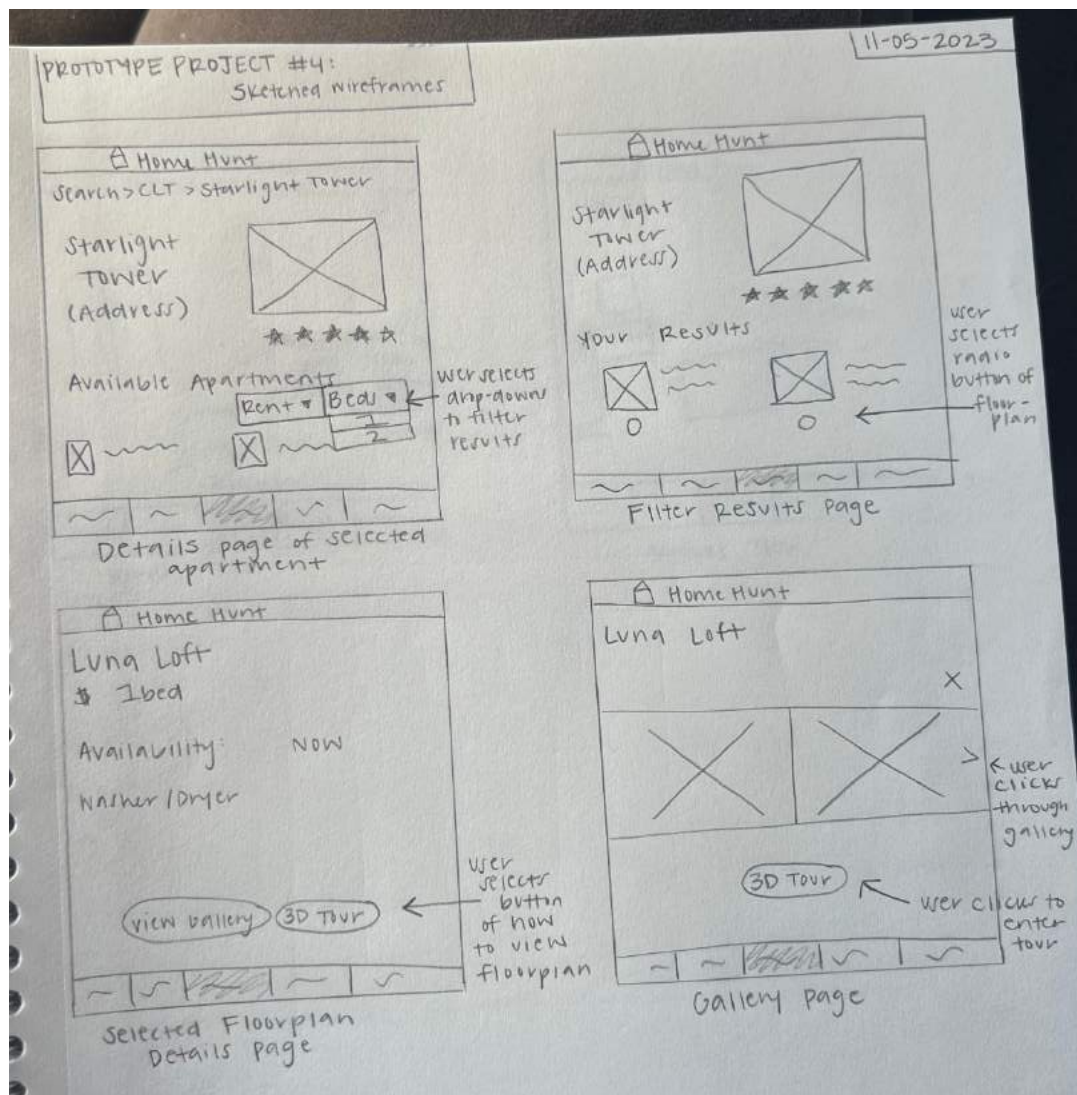 PROTOTYPE PROJECT #4:
Sketched wireframes
11-05-2023
Home Hunt
Search > CLT > Starlight Tower
Starlight
Tower
(Address)
Available Apartments
Rent
Beds
1
2
user selects
drop-down
to filter
results
Details page of selected
apartment
Home Hunt
Starlight
Tower
(Address)
Your Results
user
selects
radio
button of
floor-
plan
Filter Results Page
Home Hunt
Luna Loft
$ 1bed
Availability: NOW
Washer/Dryer
View Gallery
3D Tour
user
selects
button
of how
to view
floorplan
Selected Floorplan
Details page
Home Hunt
Luna Loft
X
>
user
clicks
through
gallery
3D Tour
user clicks to
enter
tour
Gallery page